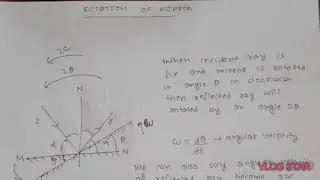 ROTATION OF MIRROR
2ω
2θ
N
When incident ray is
fix and mirror is rotated
in angle θ in clockwise
then reflected ray will
rotated by an angle 2θ
ω = dθ/dt → angular velocity
We can also say angular
of reflected ray becomes 2ω
VLOG STAR